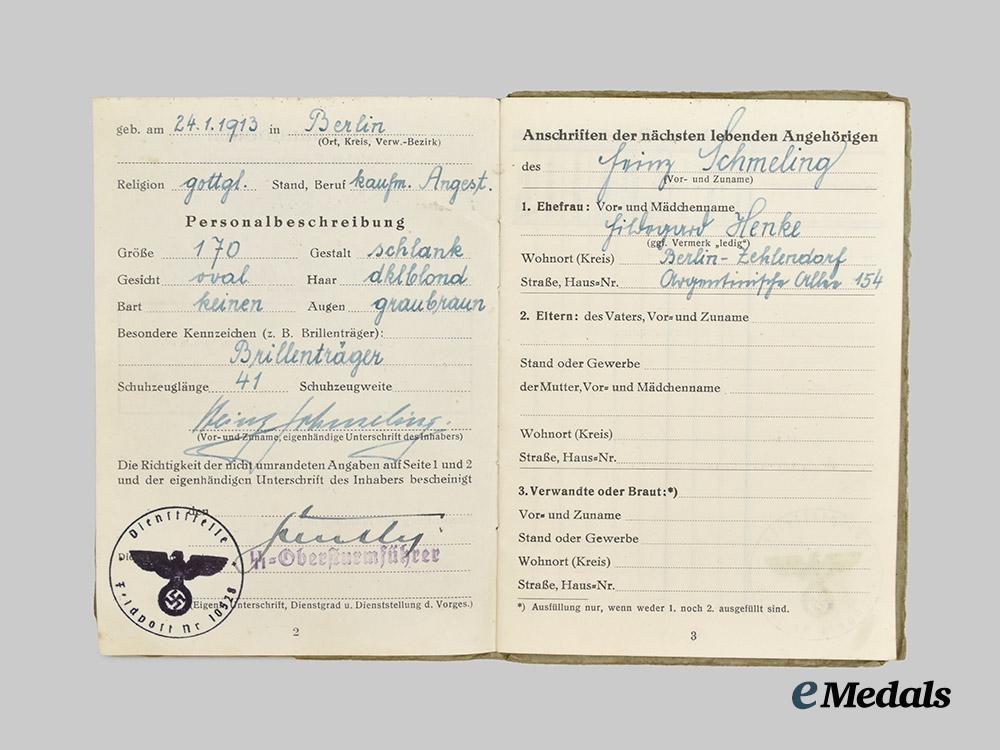 geb. am 24.1.1913 in Berlin
(Ort, Kreis, Verw.-Bezirk)
Religion gottgl. Stand, Beruf kaufm. Angest.
Personalbeschreibung
Größe 170 Gestalt schlank
Gesicht oval Haar dklblond
Bart keinen Augen graubraun
Besondere Kennzeichen (z. B. Brillenträger):
Brillenträger
Schuhzeuglänge 41 Schuhzeugweite
Heinz Schmeling.
(Vor- und Zuname, eigenhändige Unterschrift des Inhabers)
Die Richtigkeit der nicht umrandeten Angaben auf Seite 1 und 2
und der eigenhändigen Unterschrift des Inhabers bescheinigt
den
ᛋᛋ-Obersturmführer
Dienststelle
Feldpost Nr 10528
(Eigenh. Unterschrift, Dienstgrad u. Dienststellung d. Vorges.)
2
Anschriften der nächsten lebenden Angehörigen
des Heinz Schmeling
(Vor- und Zuname)
1. Ehefrau: Vor= und Mädchenname
Hildegard Henke
(ggf. Vermerk „ledig“)
Wohnort (Kreis) Berlin-Zehlendorf
Straße, Haus=Nr. Argentinische Allee 154
2. Eltern: des Vaters, Vor= und Zuname
Stand oder Gewerbe
der Mutter, Vor= und Mädchenname
Wohnort (Kreis)
Straße, Haus=Nr.
3. Verwandte oder Braut:*)
Vor= und Zuname
Stand oder Gewerbe
Wohnort (Kreis)
Straße, Haus=Nr.
*) Ausfüllung nur, wenn weder 1. noch 2. ausgefüllt sind.
3
eMedals